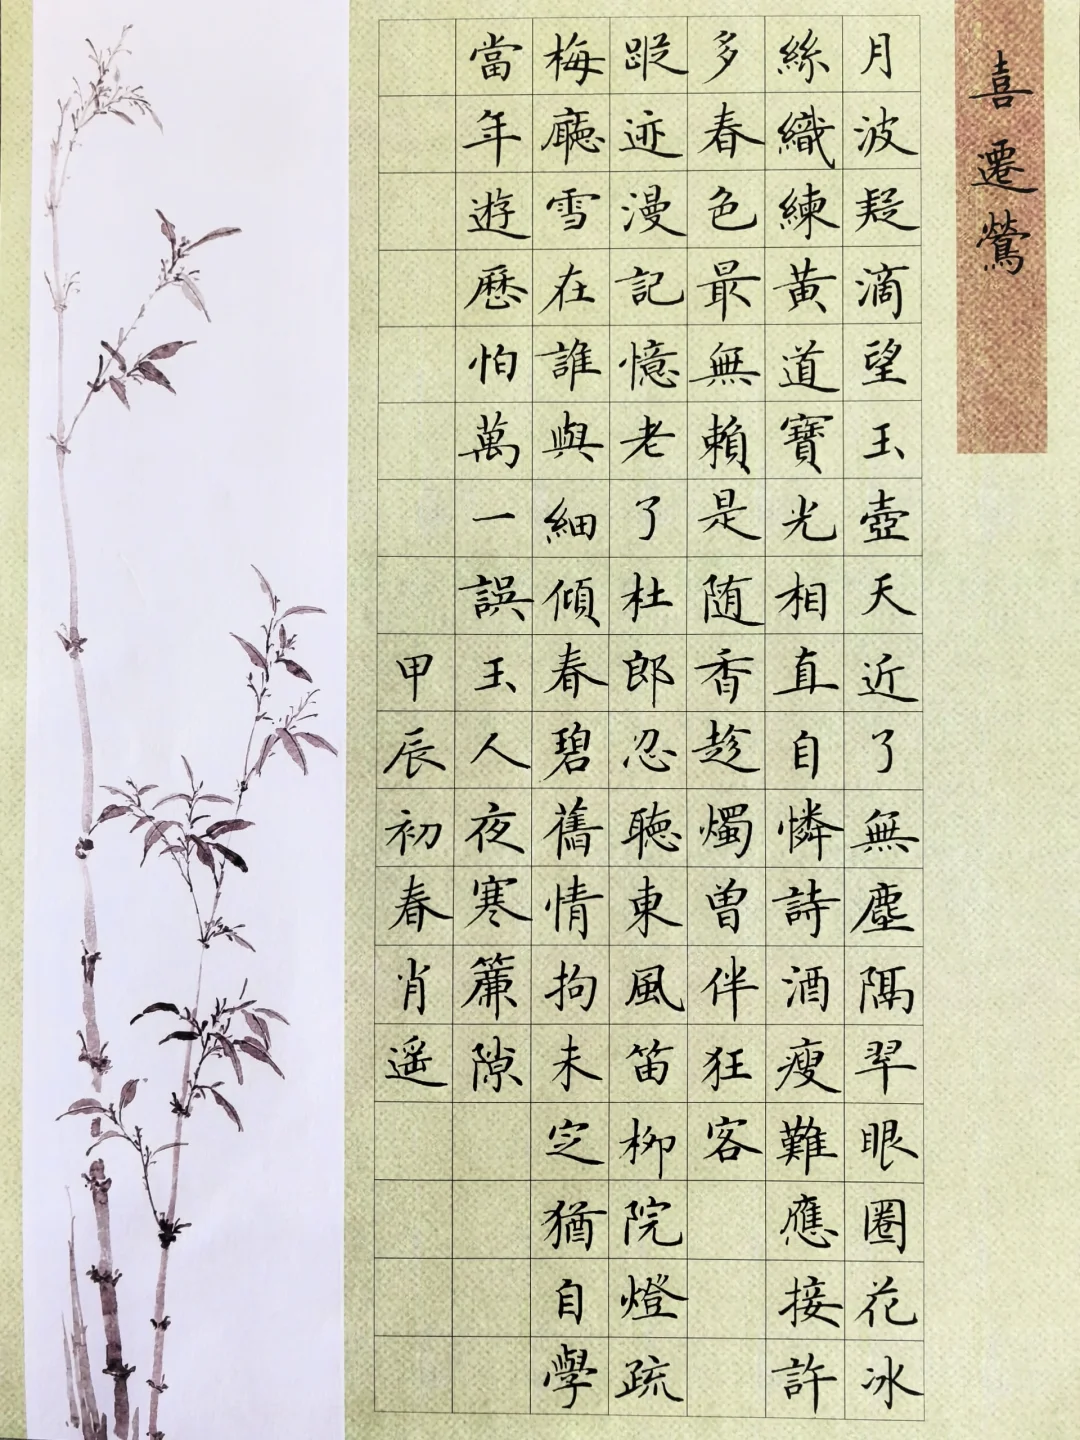 喜遷鶯
月波疑滴望玉壺天近了無塵隔翠眼圈花冰
絲織練黃道寶光相直自憐詩酒瘦難應接許
多春色最無賴是随香趁燭曾伴狂客
蹤迹漫記憶老了杜郎忍聽東風笛柳院燈疏
梅廳雪在誰與細傾春碧舊情拘未定猶自學
當年遊歷怕萬一誤玉人夜寒簾隙
甲辰初春肖遥